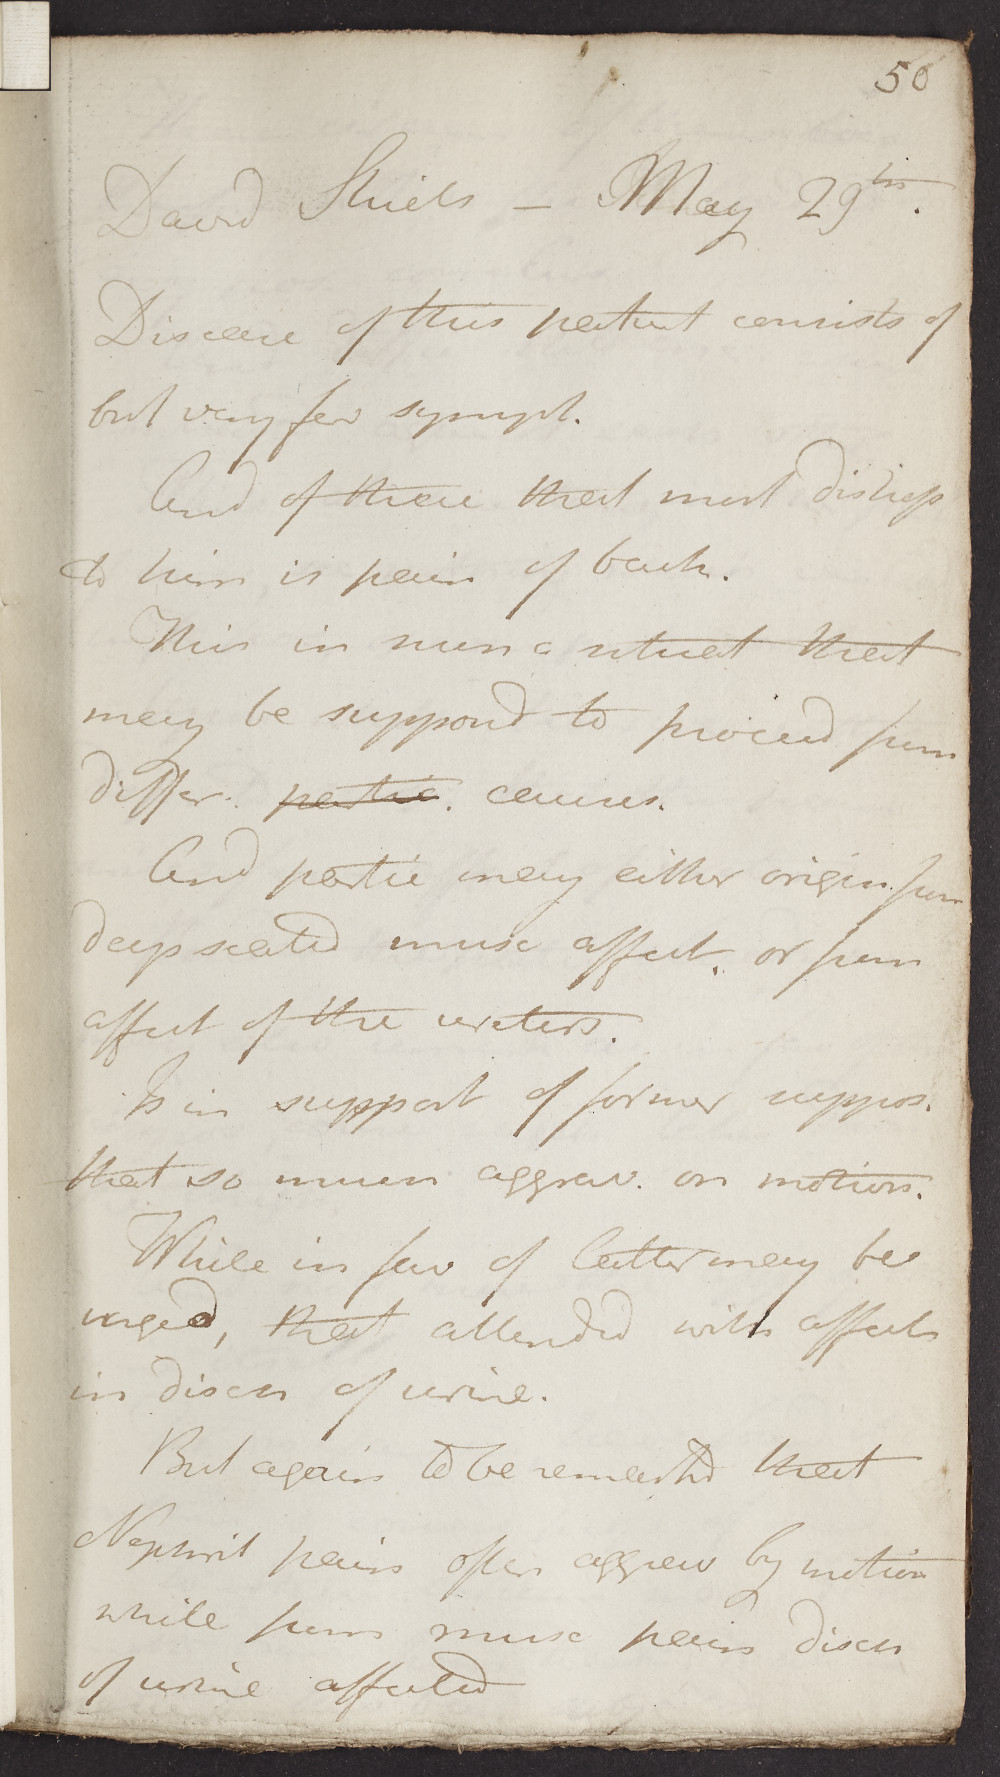 50
David Shiels - May 29th.
Disease of this patient consists of
but very few sympt.
And of these that most distress
to him is pain of back.
This in num a that
may be supposd to proceed from
differ. partic. causes.
And partic may either origin. from
deep seated musc affect. or from
affect of the ureters.
Is in support of former suppos.
that so much aggrav. on motion.
While in fav of latter may be
urged, that attended with affect
in disch of urine.
But again to be remarkd that
Nephrit pains often aggrav by motion
while from musc pains disch
of urine affected